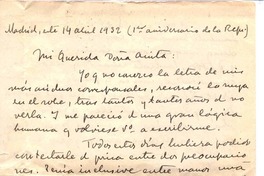 Madrid, 14 abril 1932 (1er aniversario de la Repa)
Mi Querida Doña Anita:
Yo que conozco la letra de mis
más asiduos corresponsales, reconocí la suya
en el sobre, tras tantos y tantos años de no
verla. Y me pareció d una gran lógica
humana q volviese Vd a escribirme.
Todos estos días hubiera podido
contestarle d prisa entre dos preocupacio
nes. Tenía inclusive entre manos una